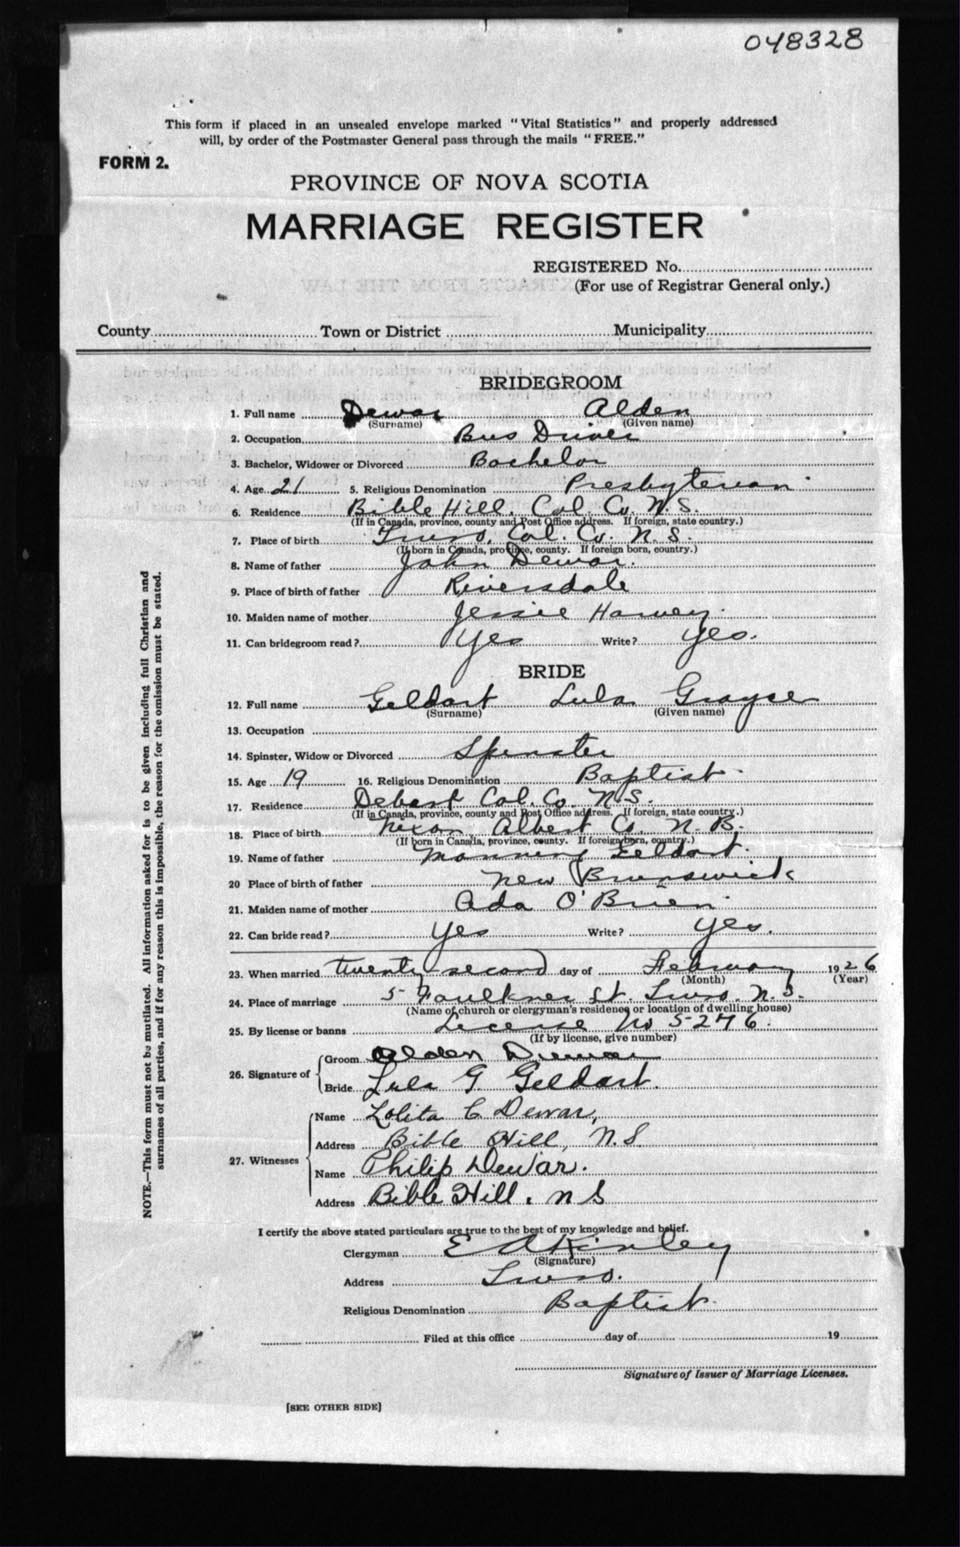 048328
This form if placed in an unsealed envelope marked "Vital Statistics" and properly addressed
will, by order of the Postmaster General pass through the mails "FREE."
FORM 2.
PROVINCE OF NOVA SCOTIA
MARRIAGE REGISTER
REGISTERED No.
(For use of Registrar General only.)
County Town or District Municipality
BRIDEGROOM
1. Full name Dewar Alden
(Surname) (Given name)
2. Occupation Bus Driver
3. Bachelor, Widower or Divorced Bachelor
4. Age 21 5. Religious Denomination Presbyterian
6. Residence Bible Hill, Col. Co. N.S.
(If in Canada, province, county and Post Office address. If foreign, state country.)
7. Place of birth Truro, Col. Co. N.S.
(If born in Canada, province, county. If foreign born, country.)
8. Name of father John Dewar.
9. Place of birth of father Riversdale
10. Maiden name of mother Jessie Harvey.
11. Can bridegroom read? Yes Write? Yes.
BRIDE
12. Full name Geldart Lula Grayce
(Surname) (Given name)
13. Occupation
14. Spinster, Widow or Divorced Spinster
15. Age 19 16. Religious Denomination Baptist
17. Residence Debert Col. Co. N.S.
(If in Canada, province, county and Post Office address. If foreign, state country.)
18. Place of birth Nixon, Albert Co. N.B.
(If born in Canada, province, county. If foreign born, country.)
19. Name of father Manning Geldart.
20 Place of birth of father New Brunswick
21. Maiden name of mother Ada O'Brien
22. Can bride read? Yes Write? Yes.
23. When married twenty second day of February 1926
(Month) (Year)
24. Place of marriage 5 Faulkner St. Truro. N.S.
(Name of church or clergyman's residence or location of dwelling house)
25. By license or banns License No 5276.
(If by license, give number)
26. Signature of Groom Alden Dewar
Bride Lula G Geldart.
27. Witnesses Name Lolita C Dewar,
Address Bible Hill, N.S
Name Philip Dewar.
Address Bible Hill. N S
I certify the above stated particulars are true to the best of my knowledge and belief.
Clergyman E A Kinley
(Signature)
Address Truro.
Religious Denomination Baptist.
Filed at this office day of 19
Signature of Issuer of Marriage Licenses.
[SEE OTHER SIDE]
NOTE.—This form must not be mutilated. All information asked for is to be given including full Christian and
surnames of all parties, and if for any reason this is impossible, the reason for the omission must be stated.